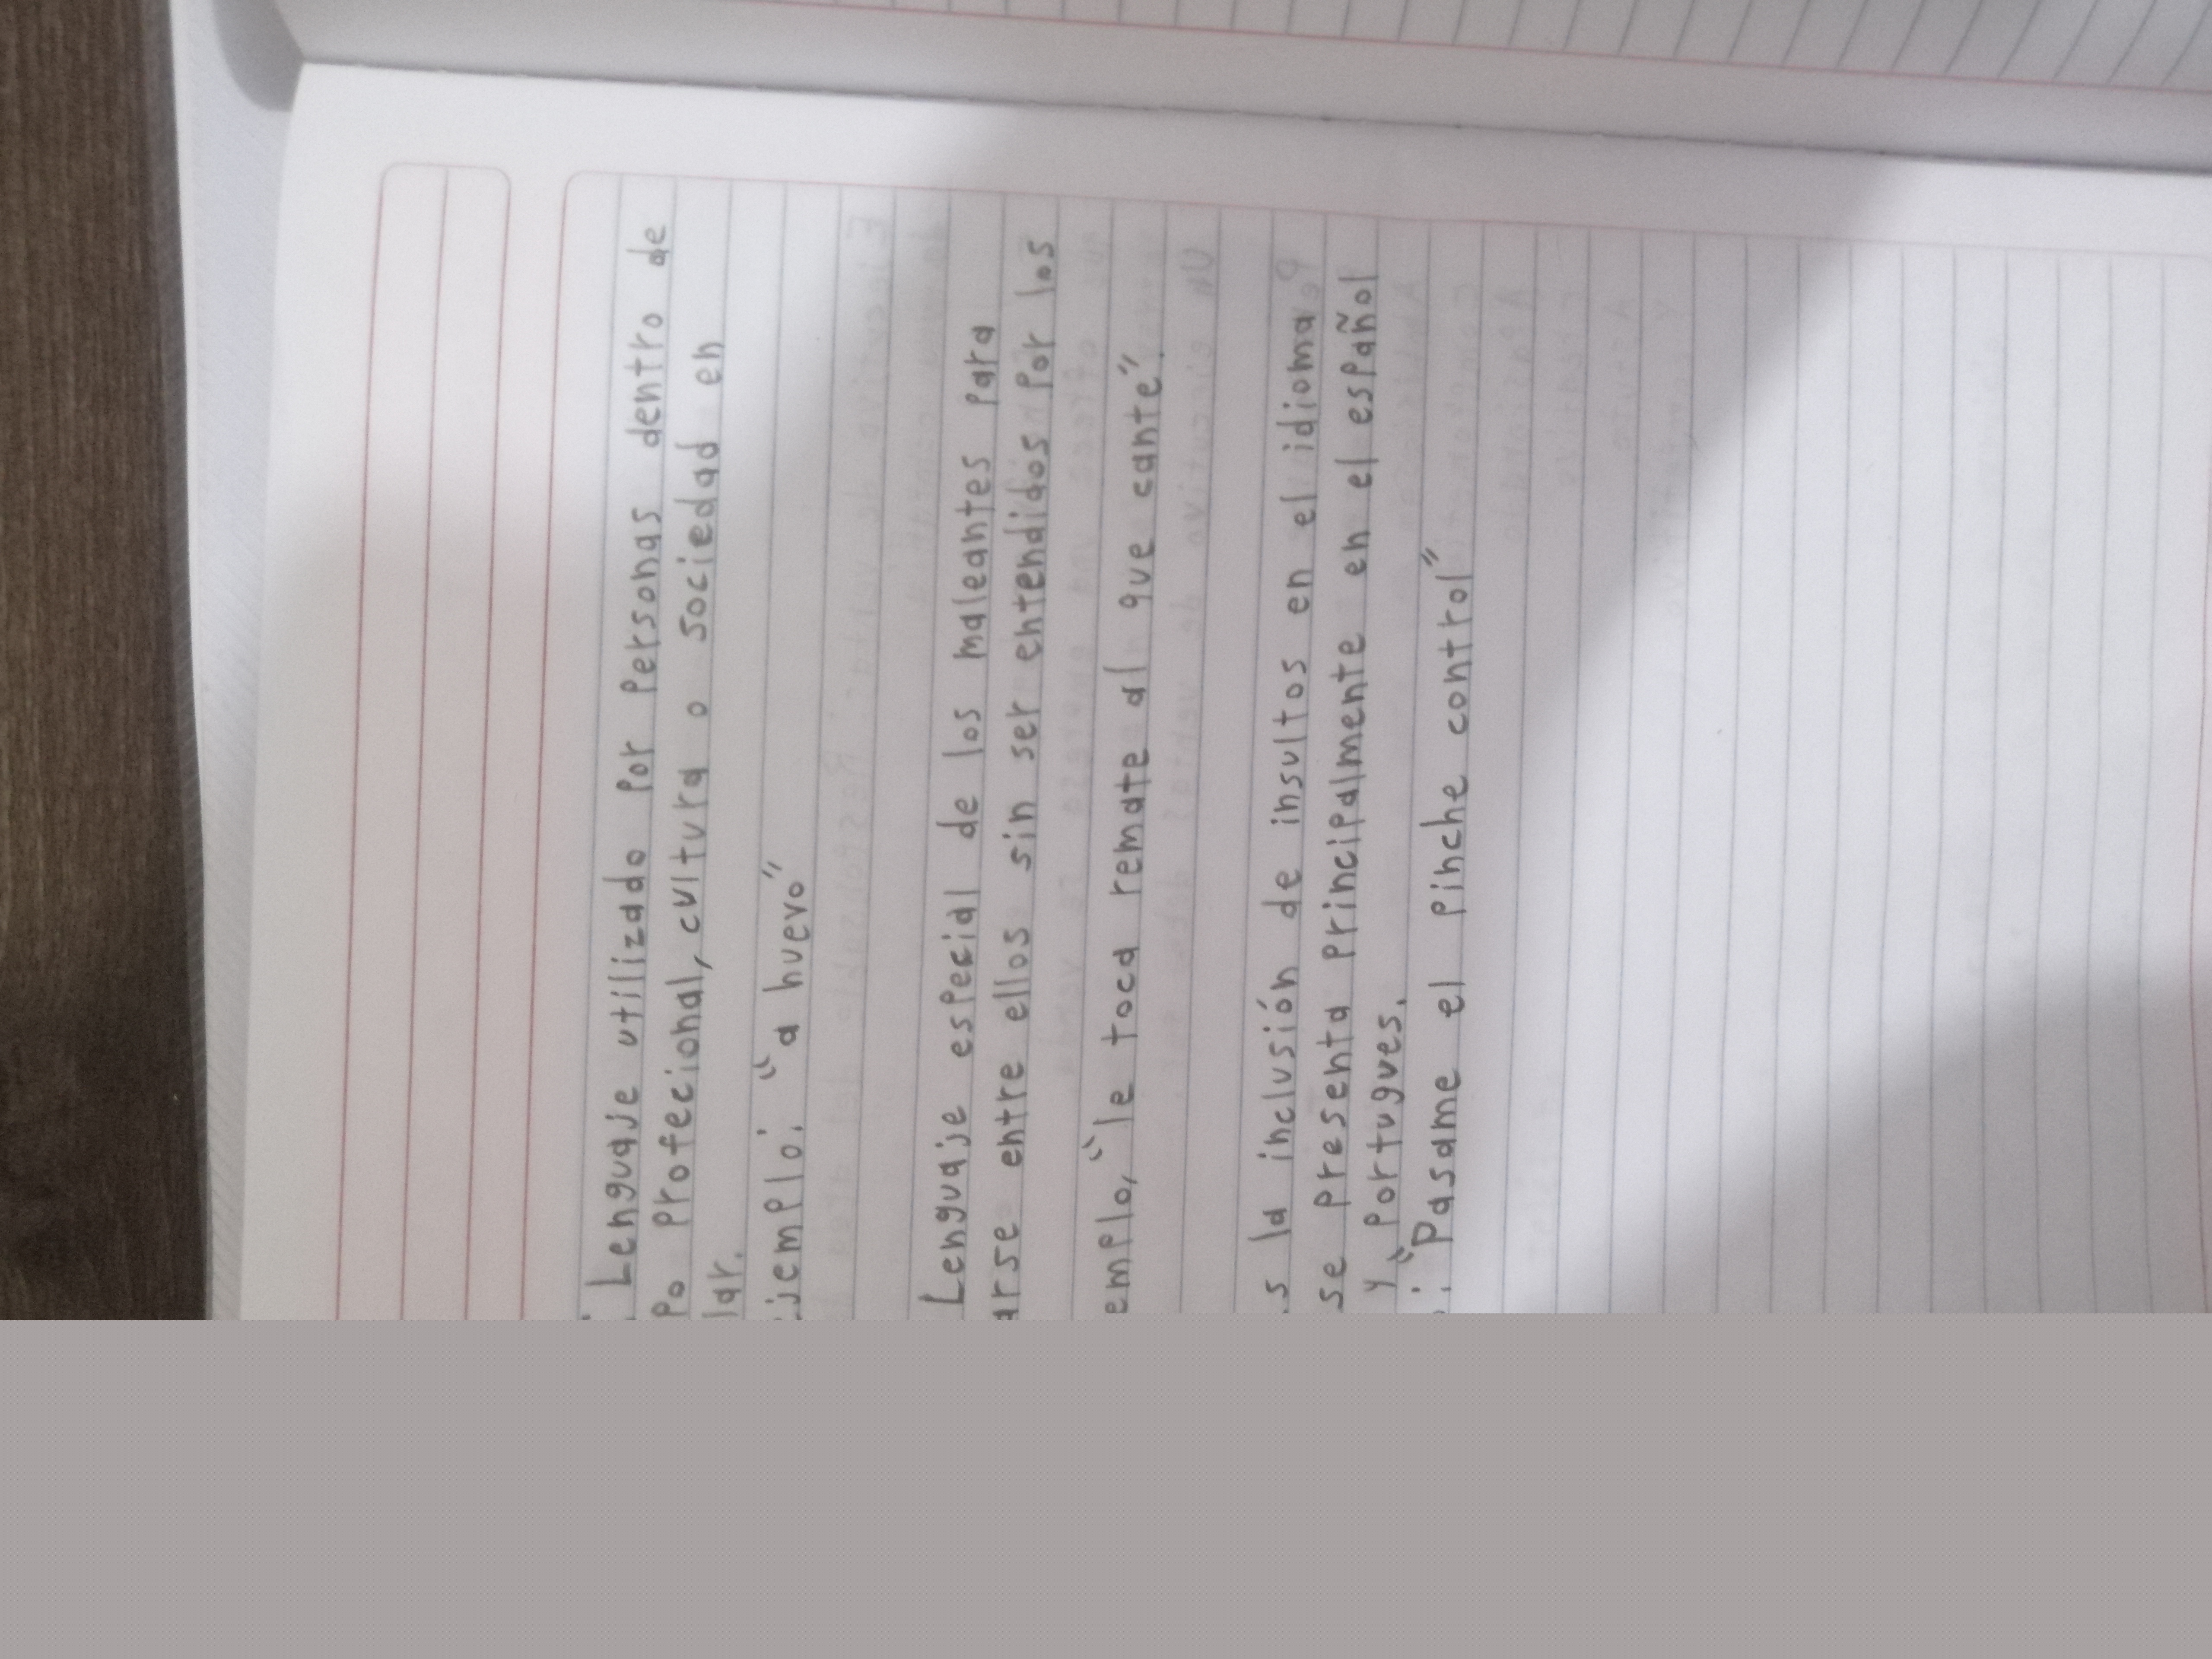 Lenguaje utilizado por personas dentro de
po profecional, cultura o sociedad en
lar.
jemplo: "a huevo"
Lenguaje especial de los maleantes para
arse entre ellos sin ser entendidos por los
emplo, "le toca remate al que cante".
s la inclusión de insultos en el idioma,
se presenta principalmente en el español
y portugues.
: "Pasame el pinche control"